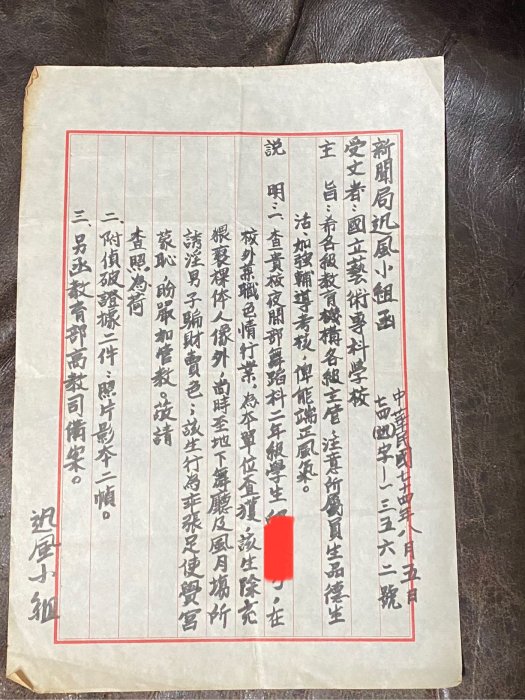 新聞局迅風小組函
中華民國七十四年八月五日
七四(迅)字ー一三五六二號
受文者：國立藝術專科學校
主　旨：希各級教育機構各級主管注意所屬員生品德生
活、加強輔導考核，俾能端正風氣。
説　明：一、查貴校夜間部舞蹈科二年級學生在
校外兼職色情行業，為本單位查獲，該生除充
猥褻裸体人像外，尚時至地下舞廳及風月場所
誘淫男子騙財賣色；該生行為乖張足使黌宮
蒙恥，盼嚴加管教。敬請
查照為荷
二、附偵破證據二件：照片影本二幀。
三、另函教育部高教司備案。
迅風小組